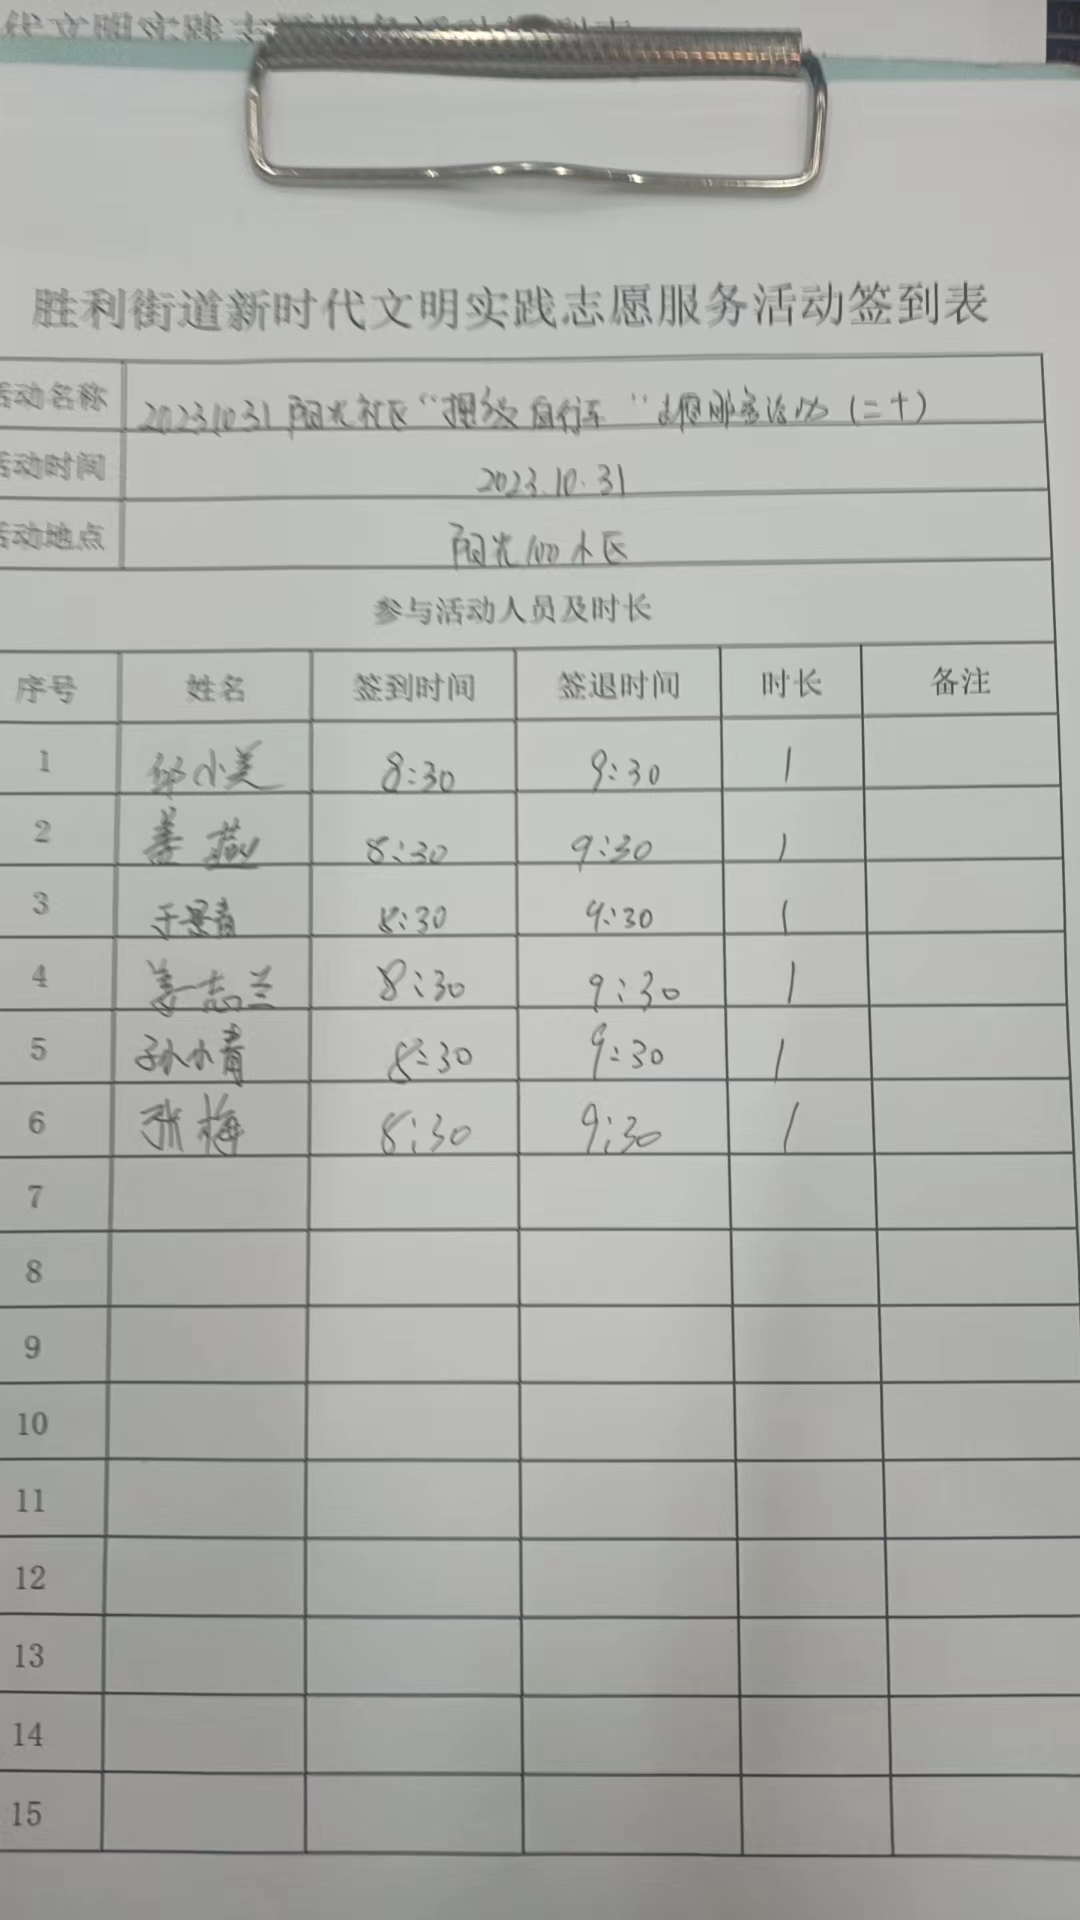 胜利街道新时代文明实践志愿服务活动签到表
活动名称 20231031阳光社区“摆放自行车”志愿服务活动(二十)
活动时间 2023.10.31
活动地点 阳光100小区
参与活动人员及时长
序号 姓名 签到时间 签退时间 时长 备注
1 邹小美 8:30 9:30 1
2 姜燕 8:30 9:30 1
3 于景青 8:30 9:30 1
4 姜志兰 8:30 9:30 1
5 孙小青 8:30 9:30 1
6 张梅 8:30 9:30 1
7
8
9
10
11
12
13
14
15